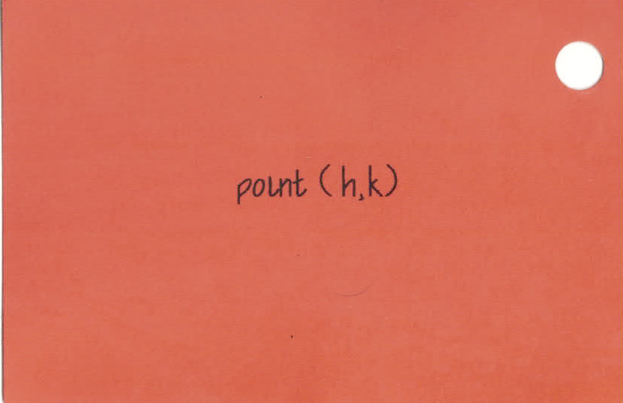 point (h,k)